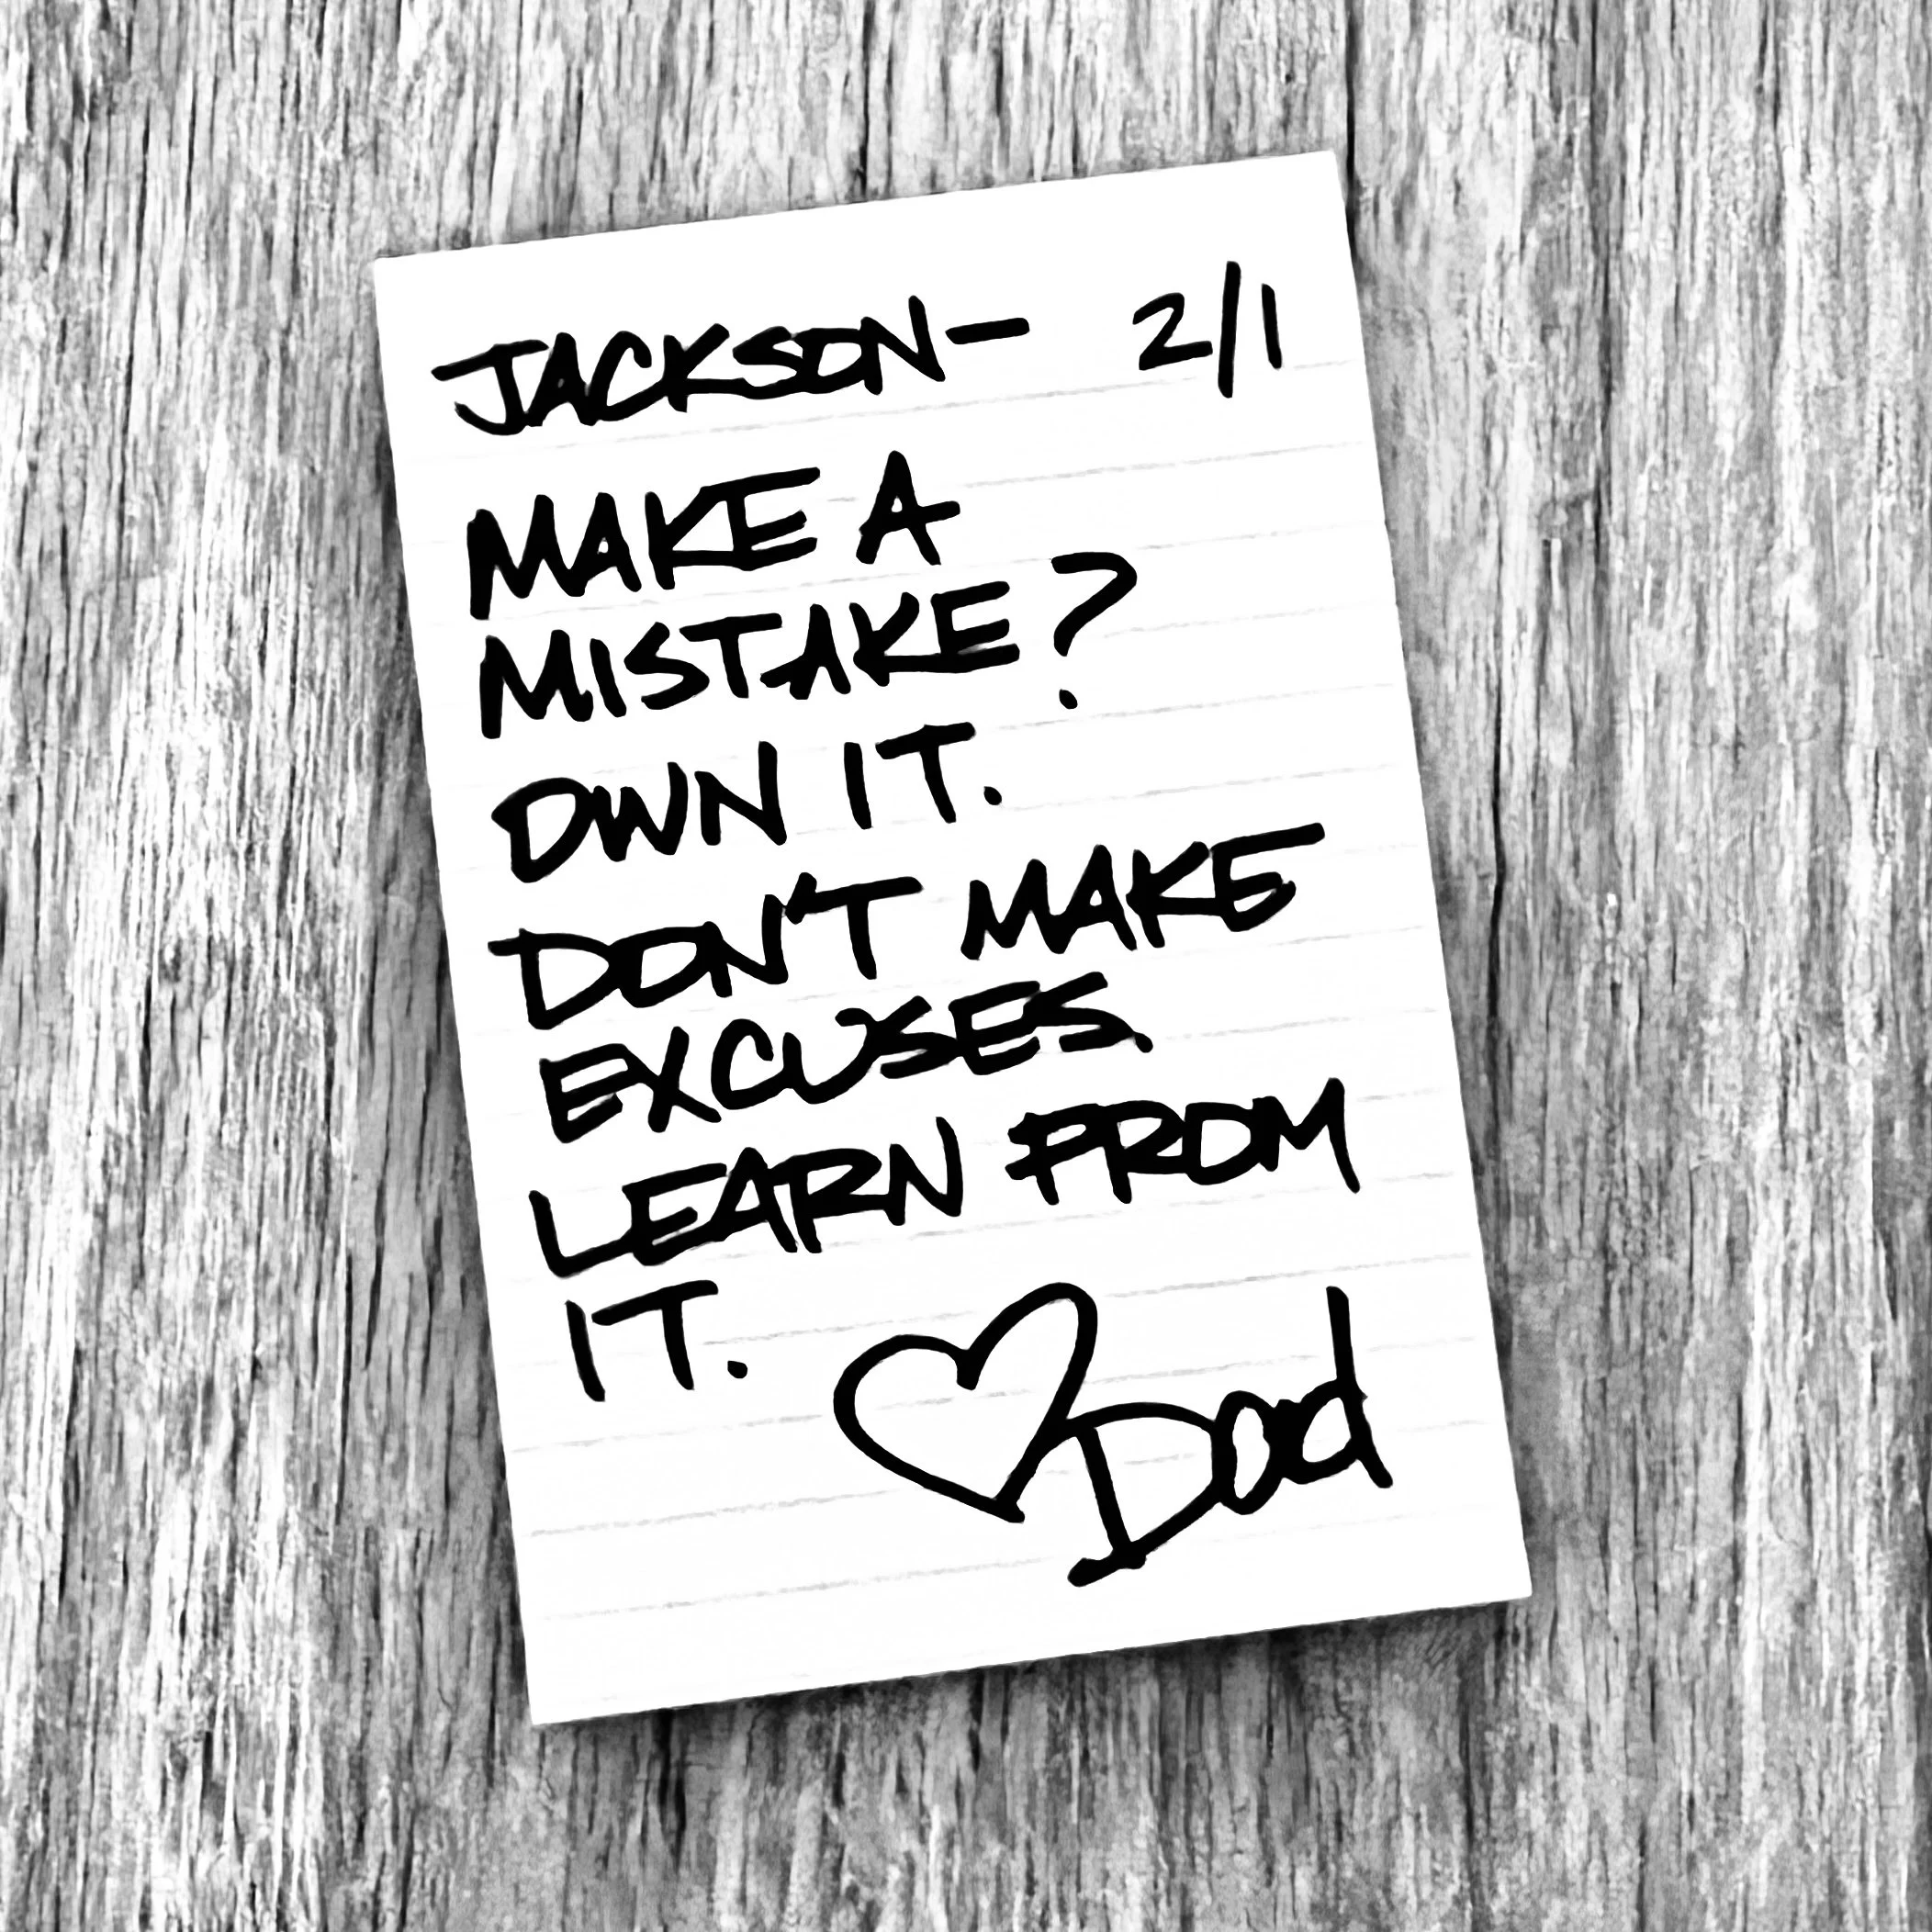 JACKSON— 2/1
MAKE A
MISTAKE?
OWN IT.
DON'T MAKE
EXCUSES.
LEARN FROM
IT.
♡Dad